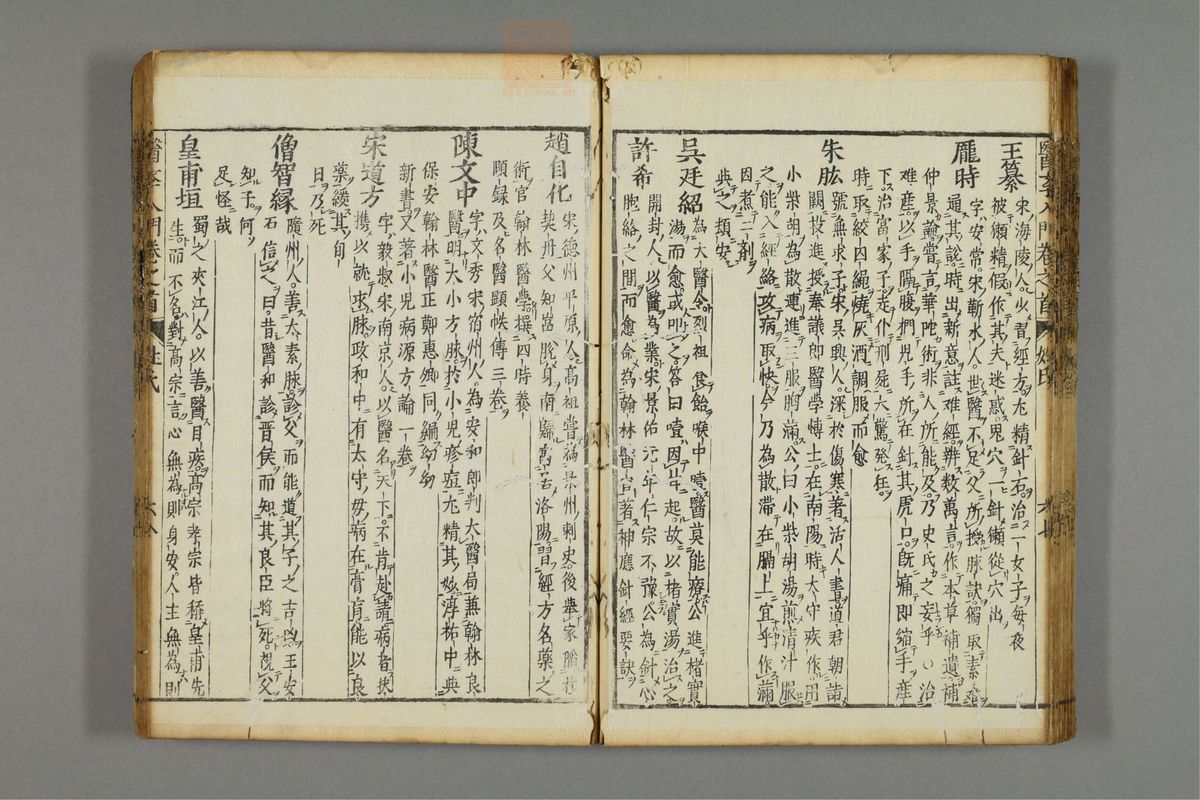 王纂 宋海陵人少習經方尤精針石治一女子每夜
被獺精假作其夫迷惑鬼穴一針獺從穴出
龐時 字安常宋蘄水人世醫不足父所授脉訣獨取素
通其說時出新意註难經辨数萬言作本草補遺補
仲景論嘗言華陀術非人所能及乃史氏之妄乎○治
难産以手隔腹捫児手所在針其虎口既痛即縮手産
下治富家子走仆刑屍大驚発狂
時取絞囚繩燒灰酒調服而愈
朱肱 號無求子宋吳興人深於傷寒著活人書道君朝詣
闕投進授奉議郎醫學愽士在南陽時太守疾作
小柴胡為散連進三服胸滿公曰小柴胡湯煎清汁服
之能入經絡攻病取快今乃為散滯在膈上宜乎作滿
因煮二劑
與之頓安
吳廷紹 為太醫令烈祖食飴喉中噎醫莫能療公進楮實
湯而愈或叩之答曰噎因甘起故以楮實湯治之
許希 開封人以醫為業宋景佑元年仁宗不豫公為針心
胞絡之間而愈命為翰林醫官著神應針經要訣
醫学入門卷之首 姓氏
趙自化 宋德州平原人高祖嘗為景州刺史後舉家陷於
契丹父知嵓脫身南歸寓居洛陽習經方名藥之
術官翰林醫學撰四時養
頤録及名醫顕帙傳三卷
陳文中 字文秀宋宿州人為安和郎判太醫局兼翰林良
醫明大小方脉於小児疹痘尤精其妙淳祐中與
保安翰林醫正鄭惠卿同編幼幼
新書又著小児病源方論一卷
宋道方 字毅叔宋南京人以醫名天下不肯赴請病者扶
携以就求脉政和中有太守母病在膏肓能以良
藥緩其旬
日乃死
僧智縁 隨州人善太素脉診父而能道其子之吉凶王安
石信之曰昔醫和診晋侯而知其良臣將死視父
知子何
足怪哉
皇甫垣 蜀之夾江人以善醫目疾髙宗孝宗皆稱皇甫先
生而不名對髙宗言心無為則身安人主無為則
醫学入門卷之首 姓氏